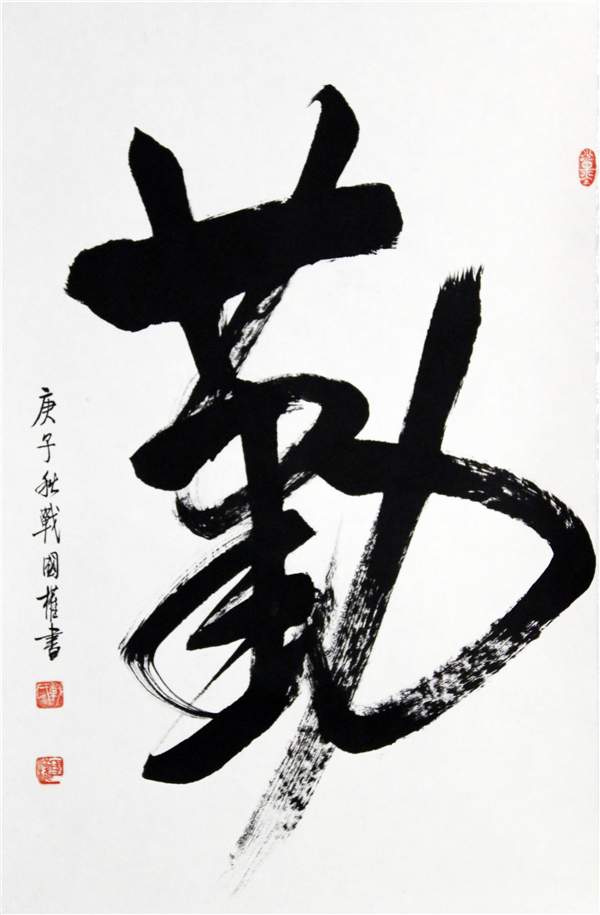 勤
庚子秋戰國權書